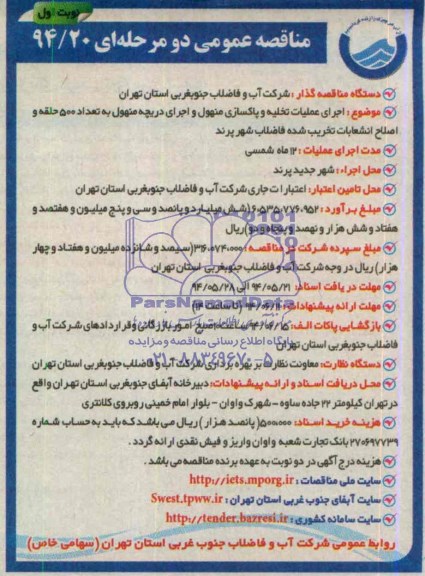 نوبت اول
مناقصه عمومی دو مرحله‌ای ۹۴/۲۰
دستگاه مناقصه گذار : شرکت آب و فاضلاب جنوبغربی استان تهران
موضوع : اجرای عملیات تخلیه و پاکسازی منهول و اجرای دریچه منهول به تعداد ۵۰۰ حلقه و
اصلاح انشعابات تخریب شده فاضلاب شهر پرند
مدت اجرای عملیات : ۱۲ ماه شمسی
محل اجراء : شهر جدید پرند
محل تامین اعتبار: اعتبارات جاری شرکت آب و فاضلاب جنوبغربی استان تهران
مبلغ برآورد : ۶،۵۳۵،۷۷۶،۹۵۲ (شش میلیارد و پانصد و سی و پنج میلیون و هفتصد و
هفتاد و شش هزار و نهصد و پنجاه و دو) ریال
مبلغ سپرده شرکت در مناقصه : ۳۱۶،۰۷۴،۰۰۰ (سیصد و شانزده میلیون و هفتاد و چهار
هزار) ریال در وجه شرکت آب و فاضلاب جنوبغربی استان تهران
مهلت دریافت اسناد: ۹۴/۰۵/۲۱ الی ۹۴/۰۵/۲۸
مهلت ارائه پیشنهادات: (تا ساعت ۱۴)
ParsNamadData
بازگشایی پاکات الف: امور بازرگانی و قراردادهای شرکت آب و
فاضلاب جنوبغربی استان تهران
پایگاه اطلاع رسانی مناقصه و مزایده
دستگاه نظارت: معاونت نظارت بر بهره برداری شرکت آب و فاضلاب جنوبغربی استان تهران
۰۲۱-۸۸۳۴۹۶۷۰-۵
محل دریافت اسناد و ارائه پیشنهادات: دبیرخانه آبفای جنوبغربی استان تهران واقع
در تهران کیلومتر ۲۲ جاده ساوه - شهرک واوان - بلوار امام خمینی روبروی کلانتری
هزینه خرید اسناد: ۵۰۰،۰۰۰ (پانصد هزار) ریال می باشد که باید به حساب شماره
۲۷۰۶۹۷۷۳۹ بانک تجارت شعبه واوان واریز و فیش نقدی ارائه گردد .
هزینه درج آگهی در دو نوبت به عهده برنده مناقصه می باشد .
سایت ملی مناقصات : http://iets.mporg.ir
سایت آبفای جنوب غربی استان تهران : Swest.tpww.ir
سایت سامانه کشوری : http://tender.bazresi.ir
روابط عمومی شرکت آب و فاضلاب جنوب غربی استان تهران (سهامی خاص)